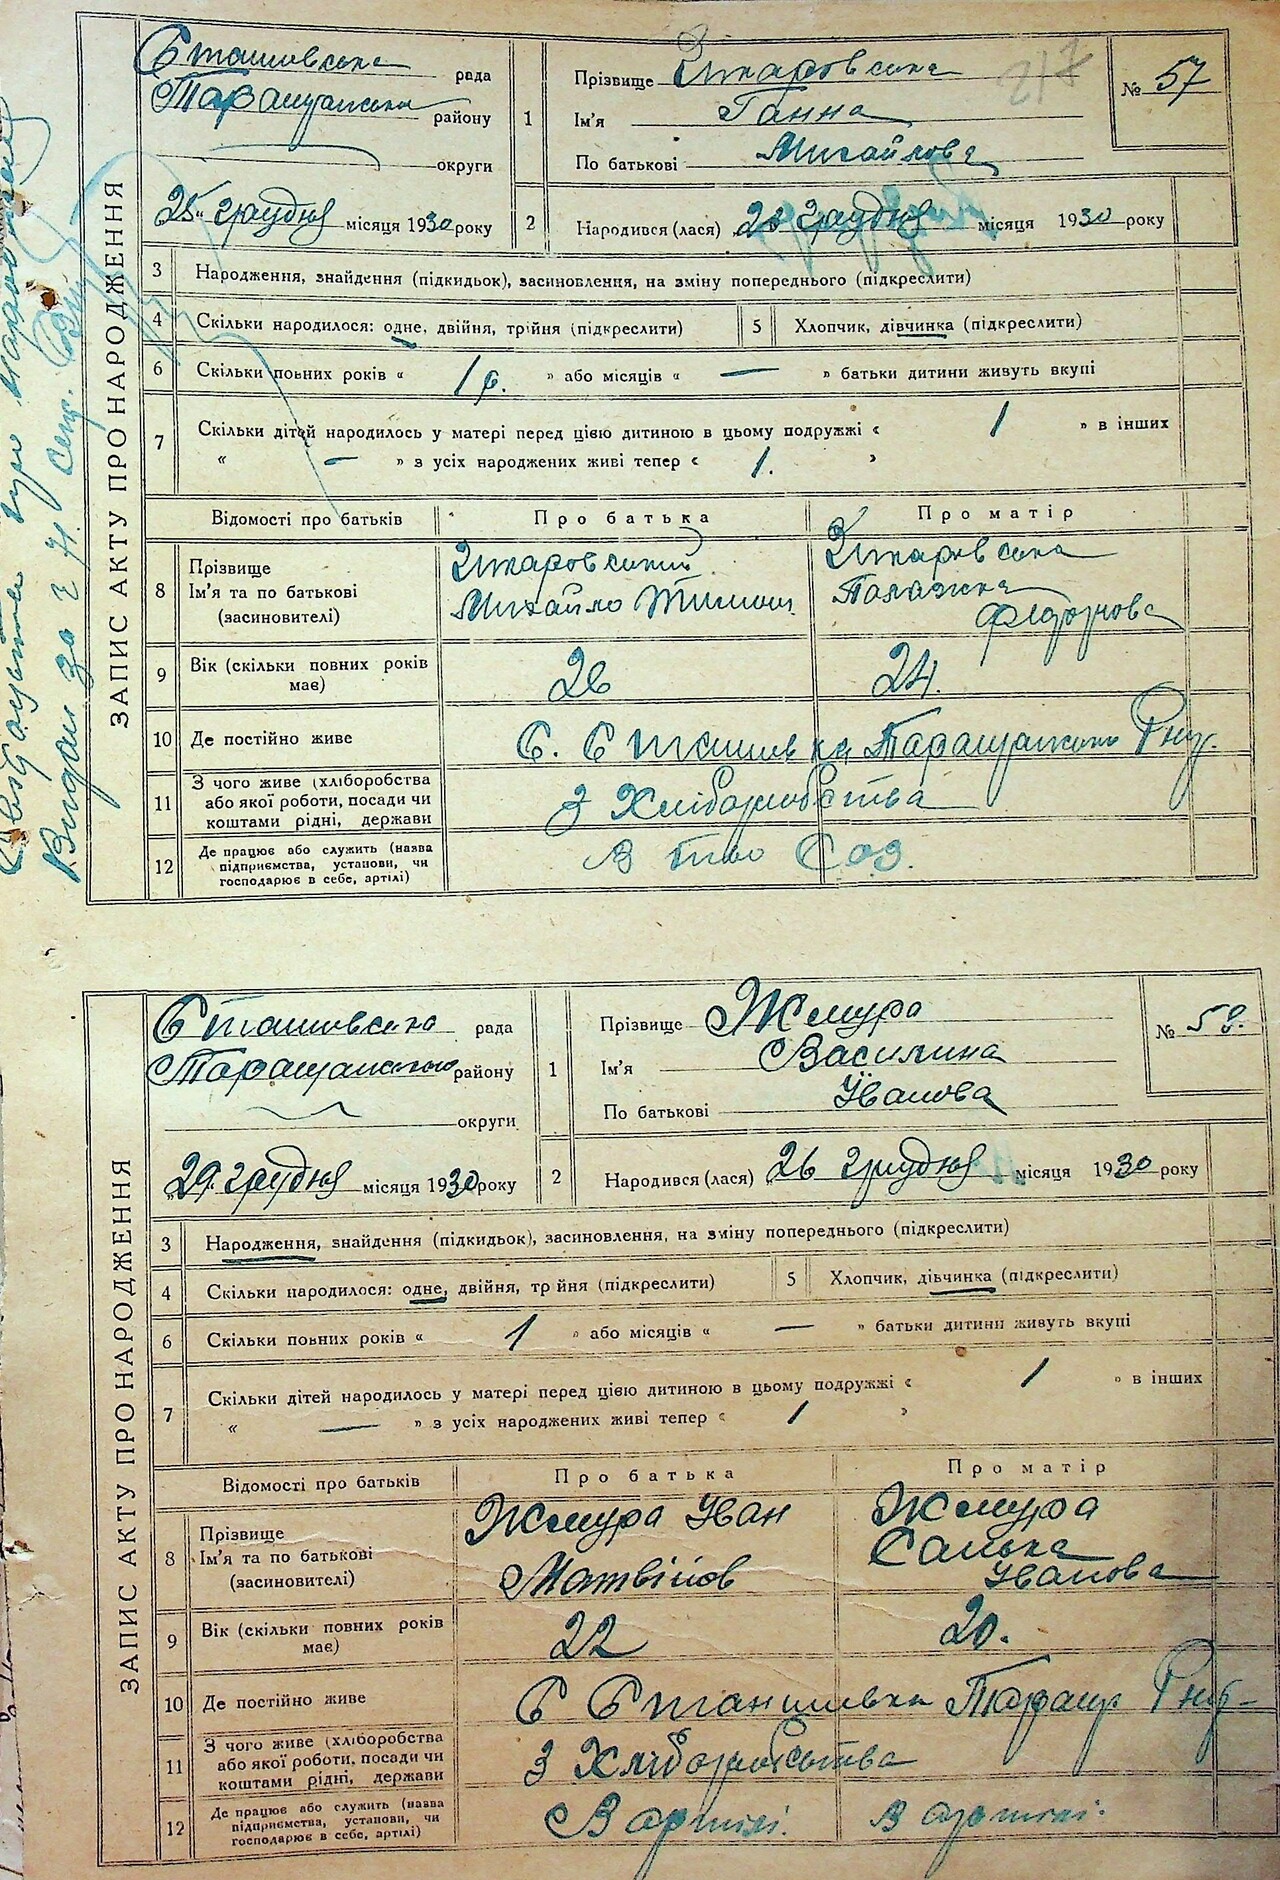 ЗАПИС АКТУ ПРО НАРОДЖЕННЯ
рада
Таращанська району
округи
25 грудня місяця 1930 року
1
Прізвище
Ім'я Ганна
По батькові Михайлова
217
№ 57
2
Народився (лася) 20 грудня місяця 1930 року
3 Народження, знайдення (підкидьок), засиновлення, на зміну попереднього (підкреслити)
4 Скільки народилося: одне, двійня, трійня (підкреслити)
5 Хлопчик, дівчинка (підкреслити)
6 Скільки повних років « 1 р. » або місяців « — » батьки дитини живуть вкупі
7 Скільки дітей народилось у матері перед цією дитиною в цьому подружжі « 1 » в інших
« — » з усіх народжених живі тепер « 1. »
Відомості про батьків Про батька Про матір
8 Прізвище
Ім'я та по батькові
(засиновителі)
Михайло Тимош.
Палажка
Федорова
9 Вік (скільки повних років має) 26 24.
10 Де постійно живе С. Таращанського Р-ну.
11 З чого живе (хліборобства або якої роботи, посади чи коштами рідні, держави З Хліборобства
12 Де працює або служить (назва підприємства, установи, чи господарює в себе, артілі) В тво Соз.
Видан за
ЗАПИС АКТУ ПРО НАРОДЖЕННЯ
рада
Таращанського району
округи
29 грудня місяця 1930 року
1
Прізвище Жмура
Ім'я Василина
По батькові Іванова
№ 58.
2
Народився (лася) 26 грудня місяця 1930 року
3 Народження, знайдення (підкидьок), засиновлення, на зміну попереднього (підкреслити)
4 Скільки народилося: одне, двійня, трійня (підкреслити)
5 Хлопчик, дівчинка (підкреслити)
6 Скільки повних років « 1 » або місяців « — » батьки дитини живуть вкупі
7 Скільки дітей народилось у матері перед цією дитиною в цьому подружжі « 1 » в інших
« — » з усіх народжених живі тепер « 1 »
Відомості про батьків Про батька Про матір
8 Прізвище
Ім'я та по батькові
(засиновителі)
Жмура Іван
Матвійов
Жмура
Санька
Іванова
9 Вік (скільки повних років має) 22 20.
10 Де постійно живе С Таращ Р-ну
11 З чого живе (хліборобства або якої роботи, посади чи коштами рідні, держави З Хліборобства
12 Де працює або служить (назва підприємства, установи, чи господарює в себе, артілі) В артілі. В артілі.